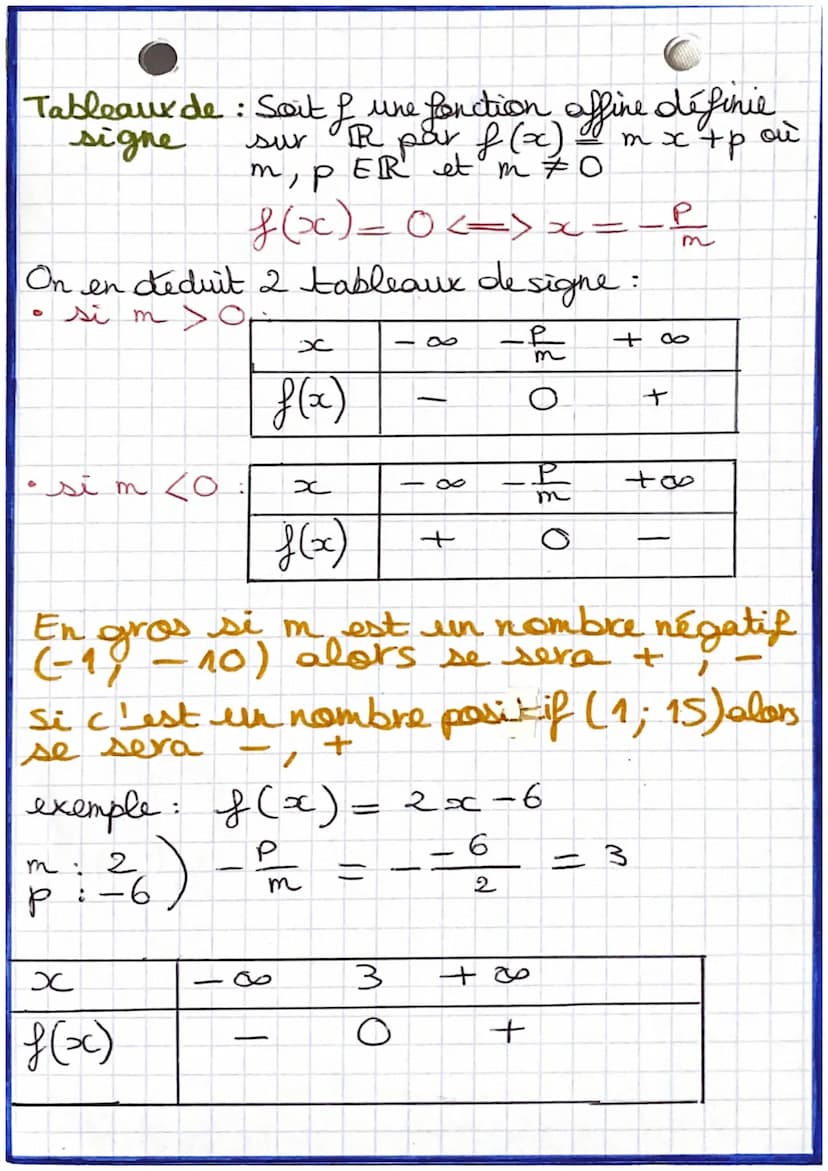 Tableaux de : Soit f une fonction affine définie
signe sur ℝ par f(x) = mx + p où
m, p ∈ ℝ et m ≠ 0
f(x) = 0 <=> x = - p/m
On en déduit 2 tableaux de signe :
• si m > 0 :
x | -∞ - p/m +∞
f(x) | - 0 +
• si m < 0 :
x | -∞ - p/m +∞
f(x) | + 0 -
En gros si m est un nombre négatif
(-1 ; -10) alors se sera + , -
Si c'est un nombre positif (1 ; 15) alors
se sera - , +
exemple : f(x) = 2x - 6
m : 2
p : -6 ) - p/m = - -6/2 = 3
x | -∞ 3 +∞
f(x) | - 0 +